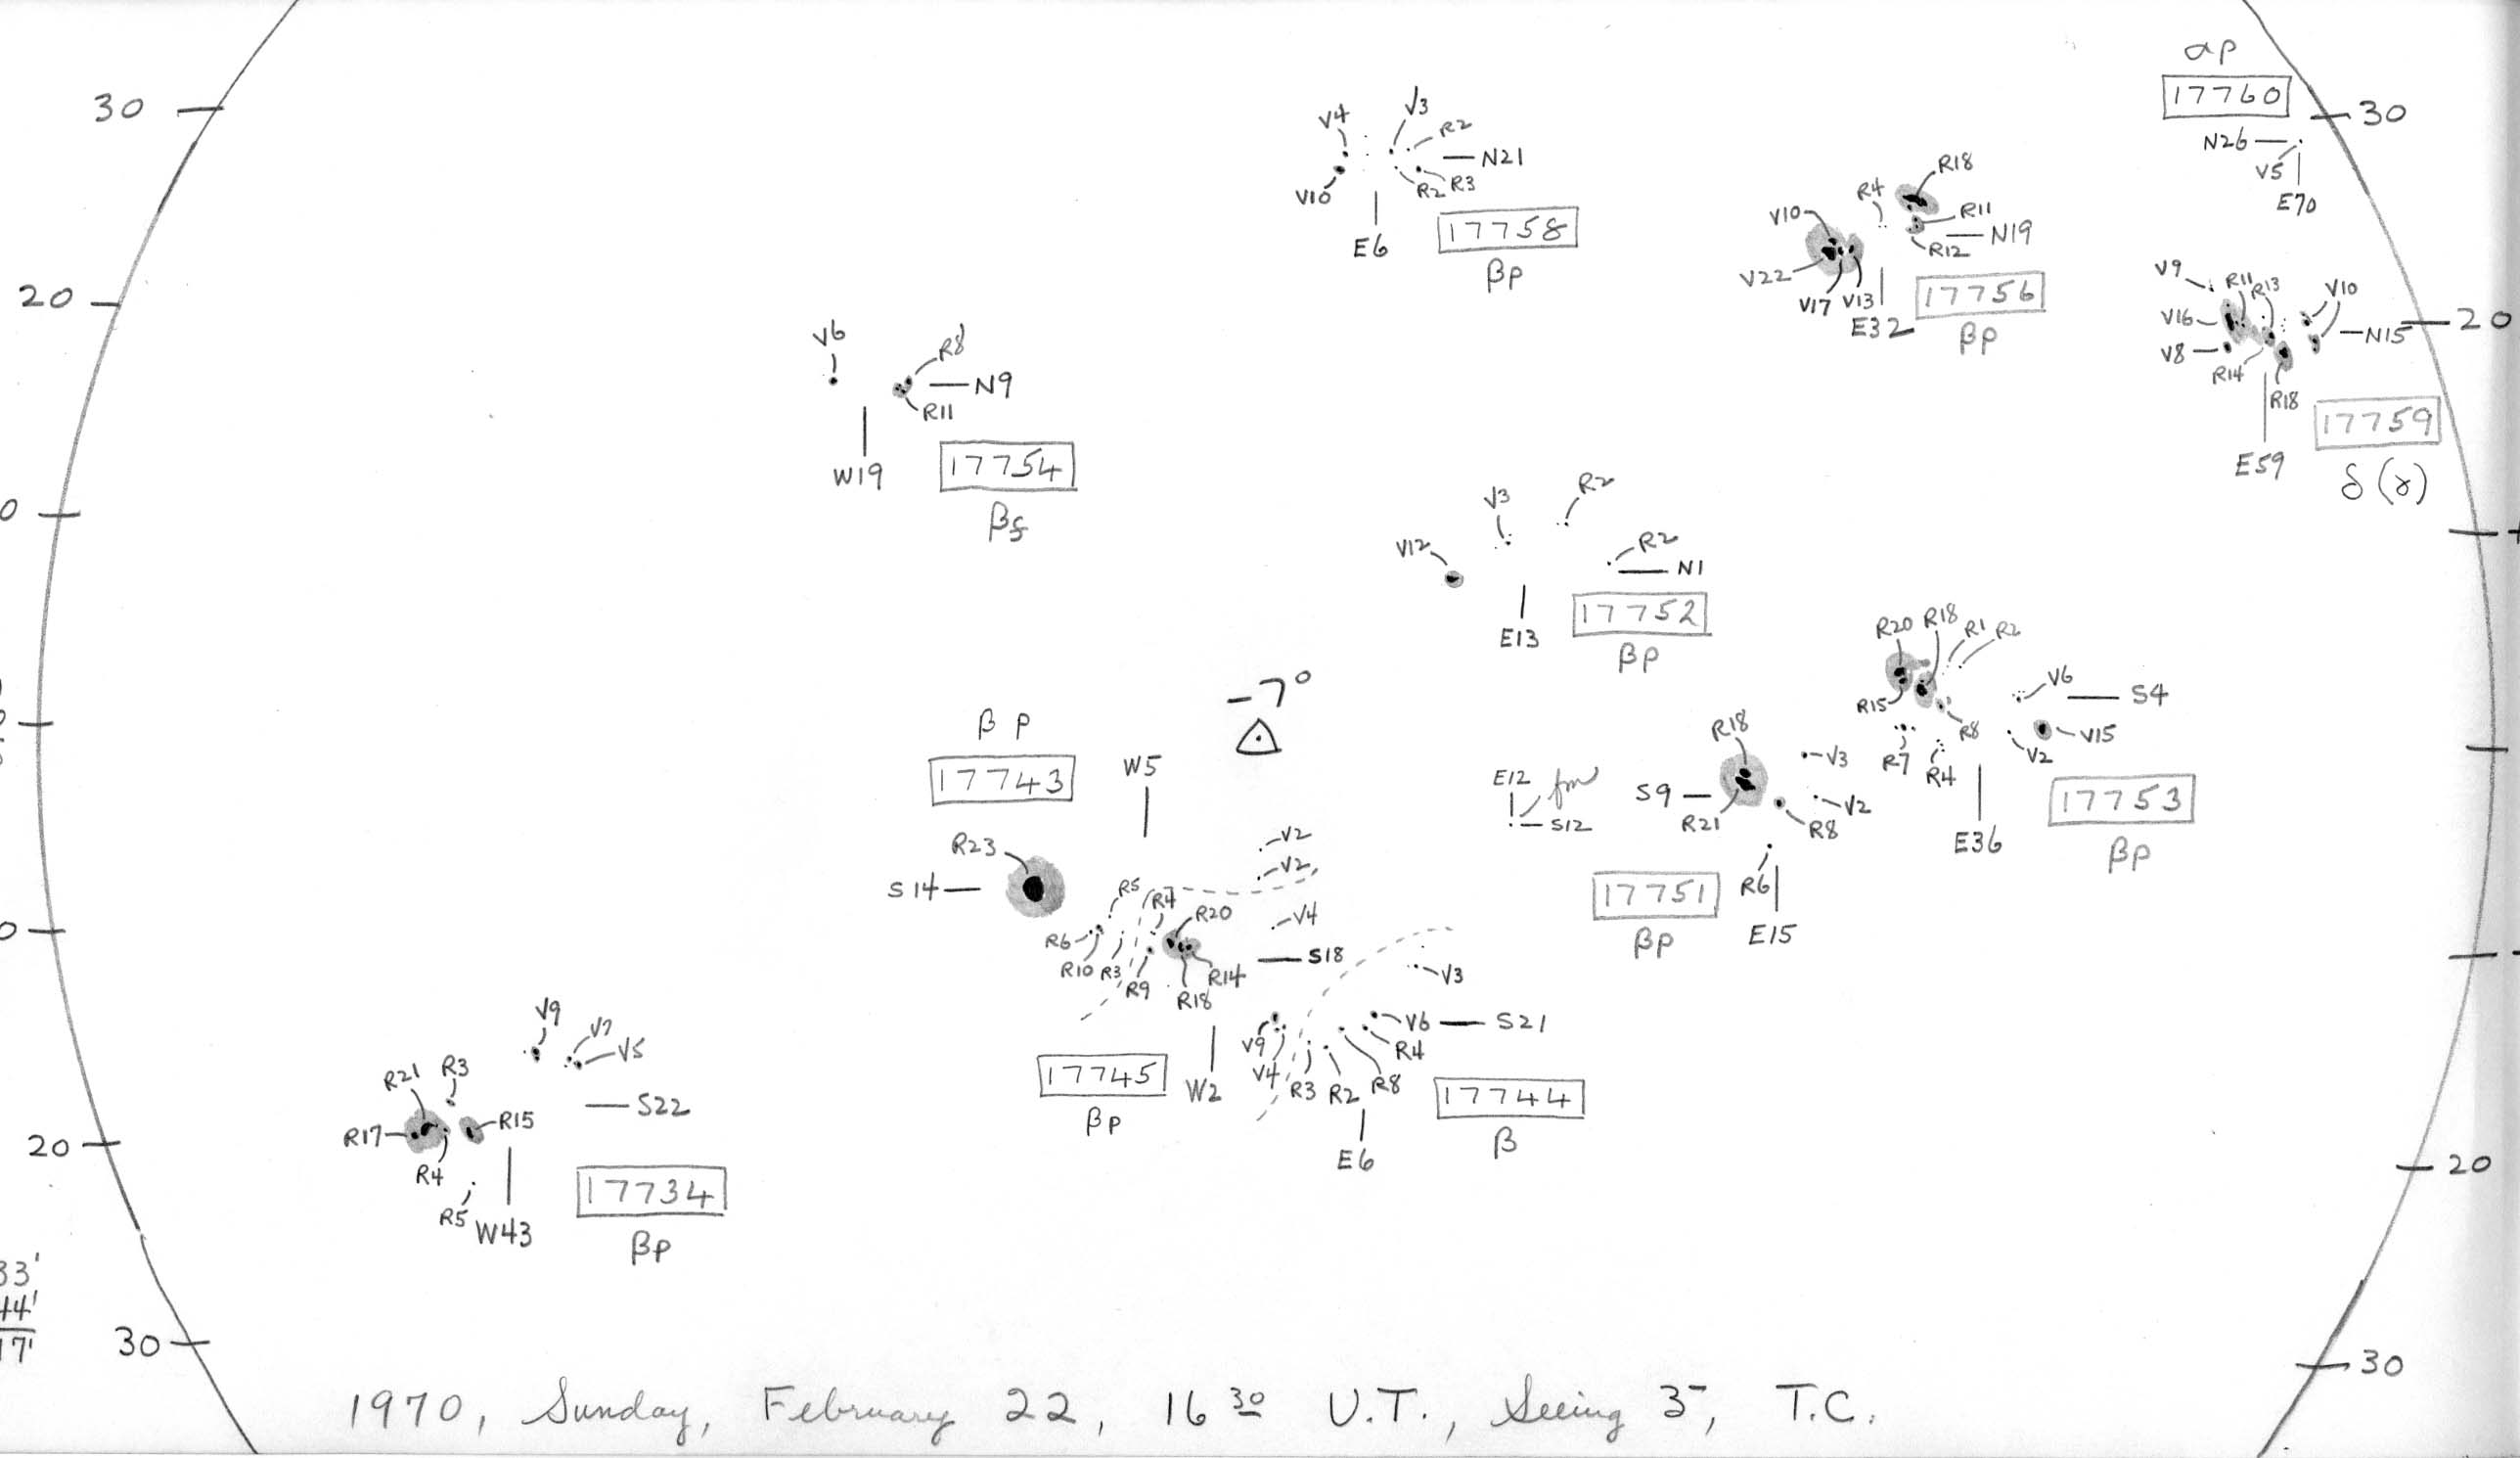 αp
17760
30
30
N26
V5
E70
V4
V3
R2
N21
V10
R2
R3
E6
17758
βp
R18
R4
V10
R11
N19
R12
V22
V17
V13
E32
17756
βp
V9
R11
R13
V10
V16
N15
20
V8
R14
R18
17759
E59
δ (γ)
20
V6
R8
N9
R11
W19
17754
βf
V3
R2
V12
R2
N1
E13
17752
βp
-7°
R20
R18
R1
R2
V6
S4
R15
R8
V15
R7
R4
V2
17753
E36
βp
β p
17743
W5
R23
S14
R18
V3
E12
S9
V2
S12
R21
R8
R6
17751
E15
βp
V2
V2
R5
R7
R20
V4
R6
R10
R3
R9
R18
R14
S18
V3
17745
βp
W2
V9
V4
R3
R2
R8
R4
V6
S21
17744
E6
β
V9
V7
V5
R21
R3
S22
R17
R15
R4
R5
W43
17734
βp
20
20
33'
44'
17'
30
30
1970, Sunday, February 22, 16 30 U.T., Seeing 3-, T.C.